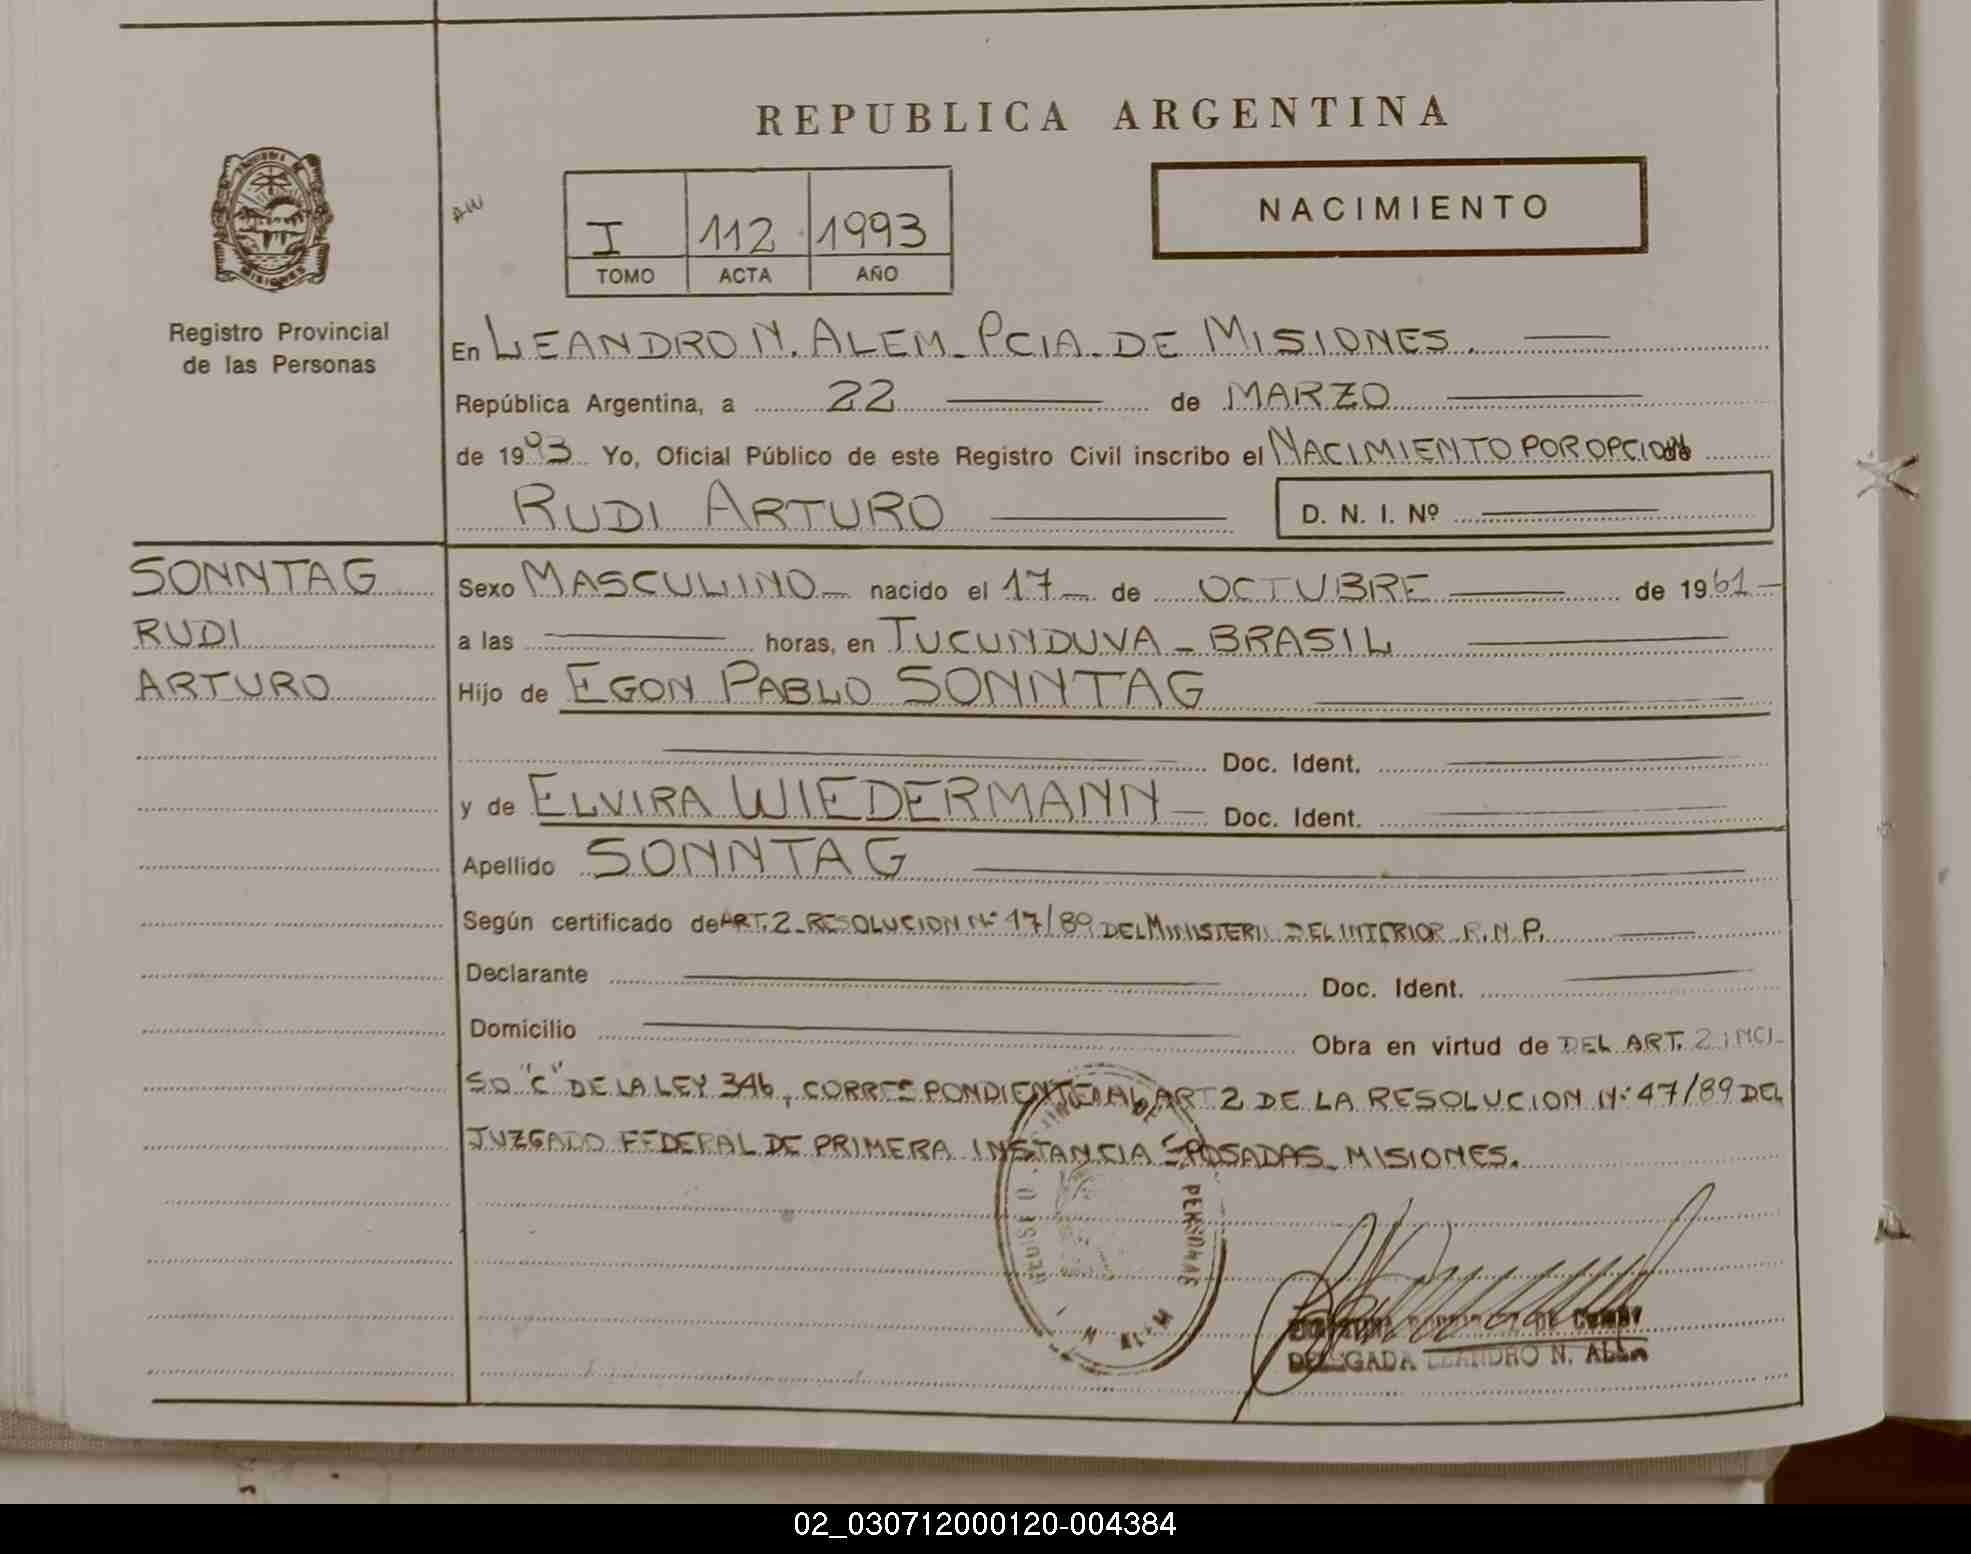 REPUBLICA ARGENTINA
I 112 1993
TOMO ACTA AÑO
NACIMIENTO
MISIONES
Registro Provincial
de las Personas
En LEANDRO N. ALEM - PCIA. DE MISIONES.
República Argentina, a 22 de MARZO
de 1993 Yo, Oficial Público de este Registro Civil inscribo el NACIMIENTO POR OPCION
RUDI ARTURO
D. N. I. Nº
SONNTAG
RUDI
ARTURO
Sexo MASCULINO nacido el 17 de OCTUBRE de 1961
a las horas, en TUCUNDUVA - BRASIL
Hijo de EGON PABLO SONNTAG
Doc. Ident.
y de ELVIRA WIEDERMANN Doc. Ident.
Apellido SONNTAG
Según certificado de ART. 2 - RESOLUCION Nº 17/89 DEL MINISTERI DEL INTERIOR R.N.P.
Declarante Doc. Ident.
Domicilio Obra en virtud de DEL ART. 2 INCI-
SO "C" DE LA LEY 346, CORRESPONDIENTE AL ART 2 DE LA RESOLUCION Nº 47/89 DEL
JUZGADO FEDERAL DE PRIMERA INSTANCIA - POSADAS - MISIONES.
PERSONAS
DELEGADA LEANDRO N. ALEM
02_030712000120-004384